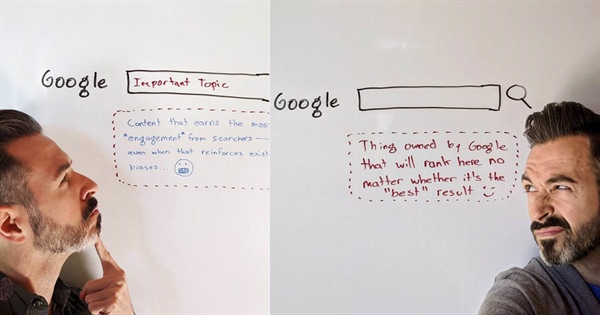 Google
Important Topic
Content that earns the mos
*engagement* from searchers —
even when that reinforces exist
biases...
Google
Thing owned by Google
that will rank here no
matter whether it's the
"best" result